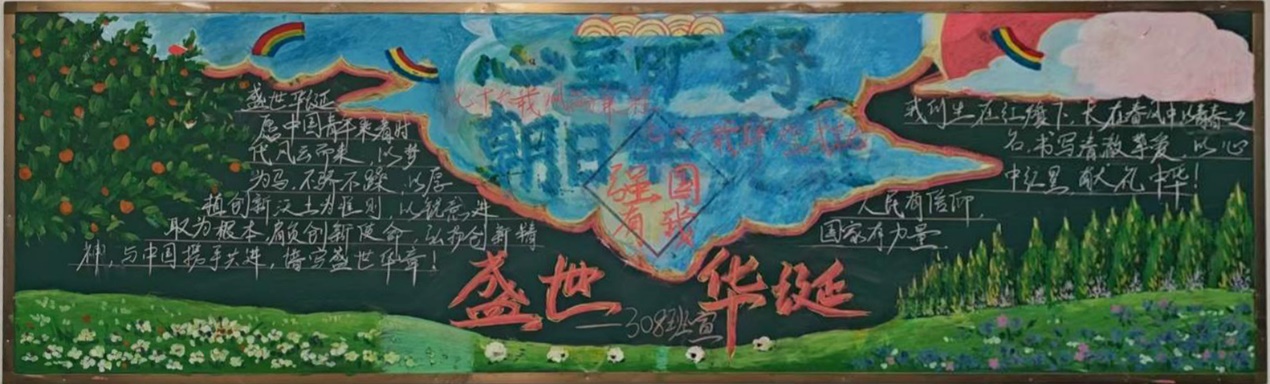 心至可野
朝日
强国
有我
盛世华诞
愿中国青年乘着时
代风云而来，以梦
为马，不骄不躁，以厚
植创新沃土为准则，以锐意进
取为根本，肩负创新使命，弘扬创新精
神，与中国携手共进，谱写盛世华章！
我们生在红旗下，长在春风中，以青春之
名，书写尊敬挚爱，以心
中红星，献礼中华！
人民有信仰，
国家有力量
盛世华诞
—308班宣